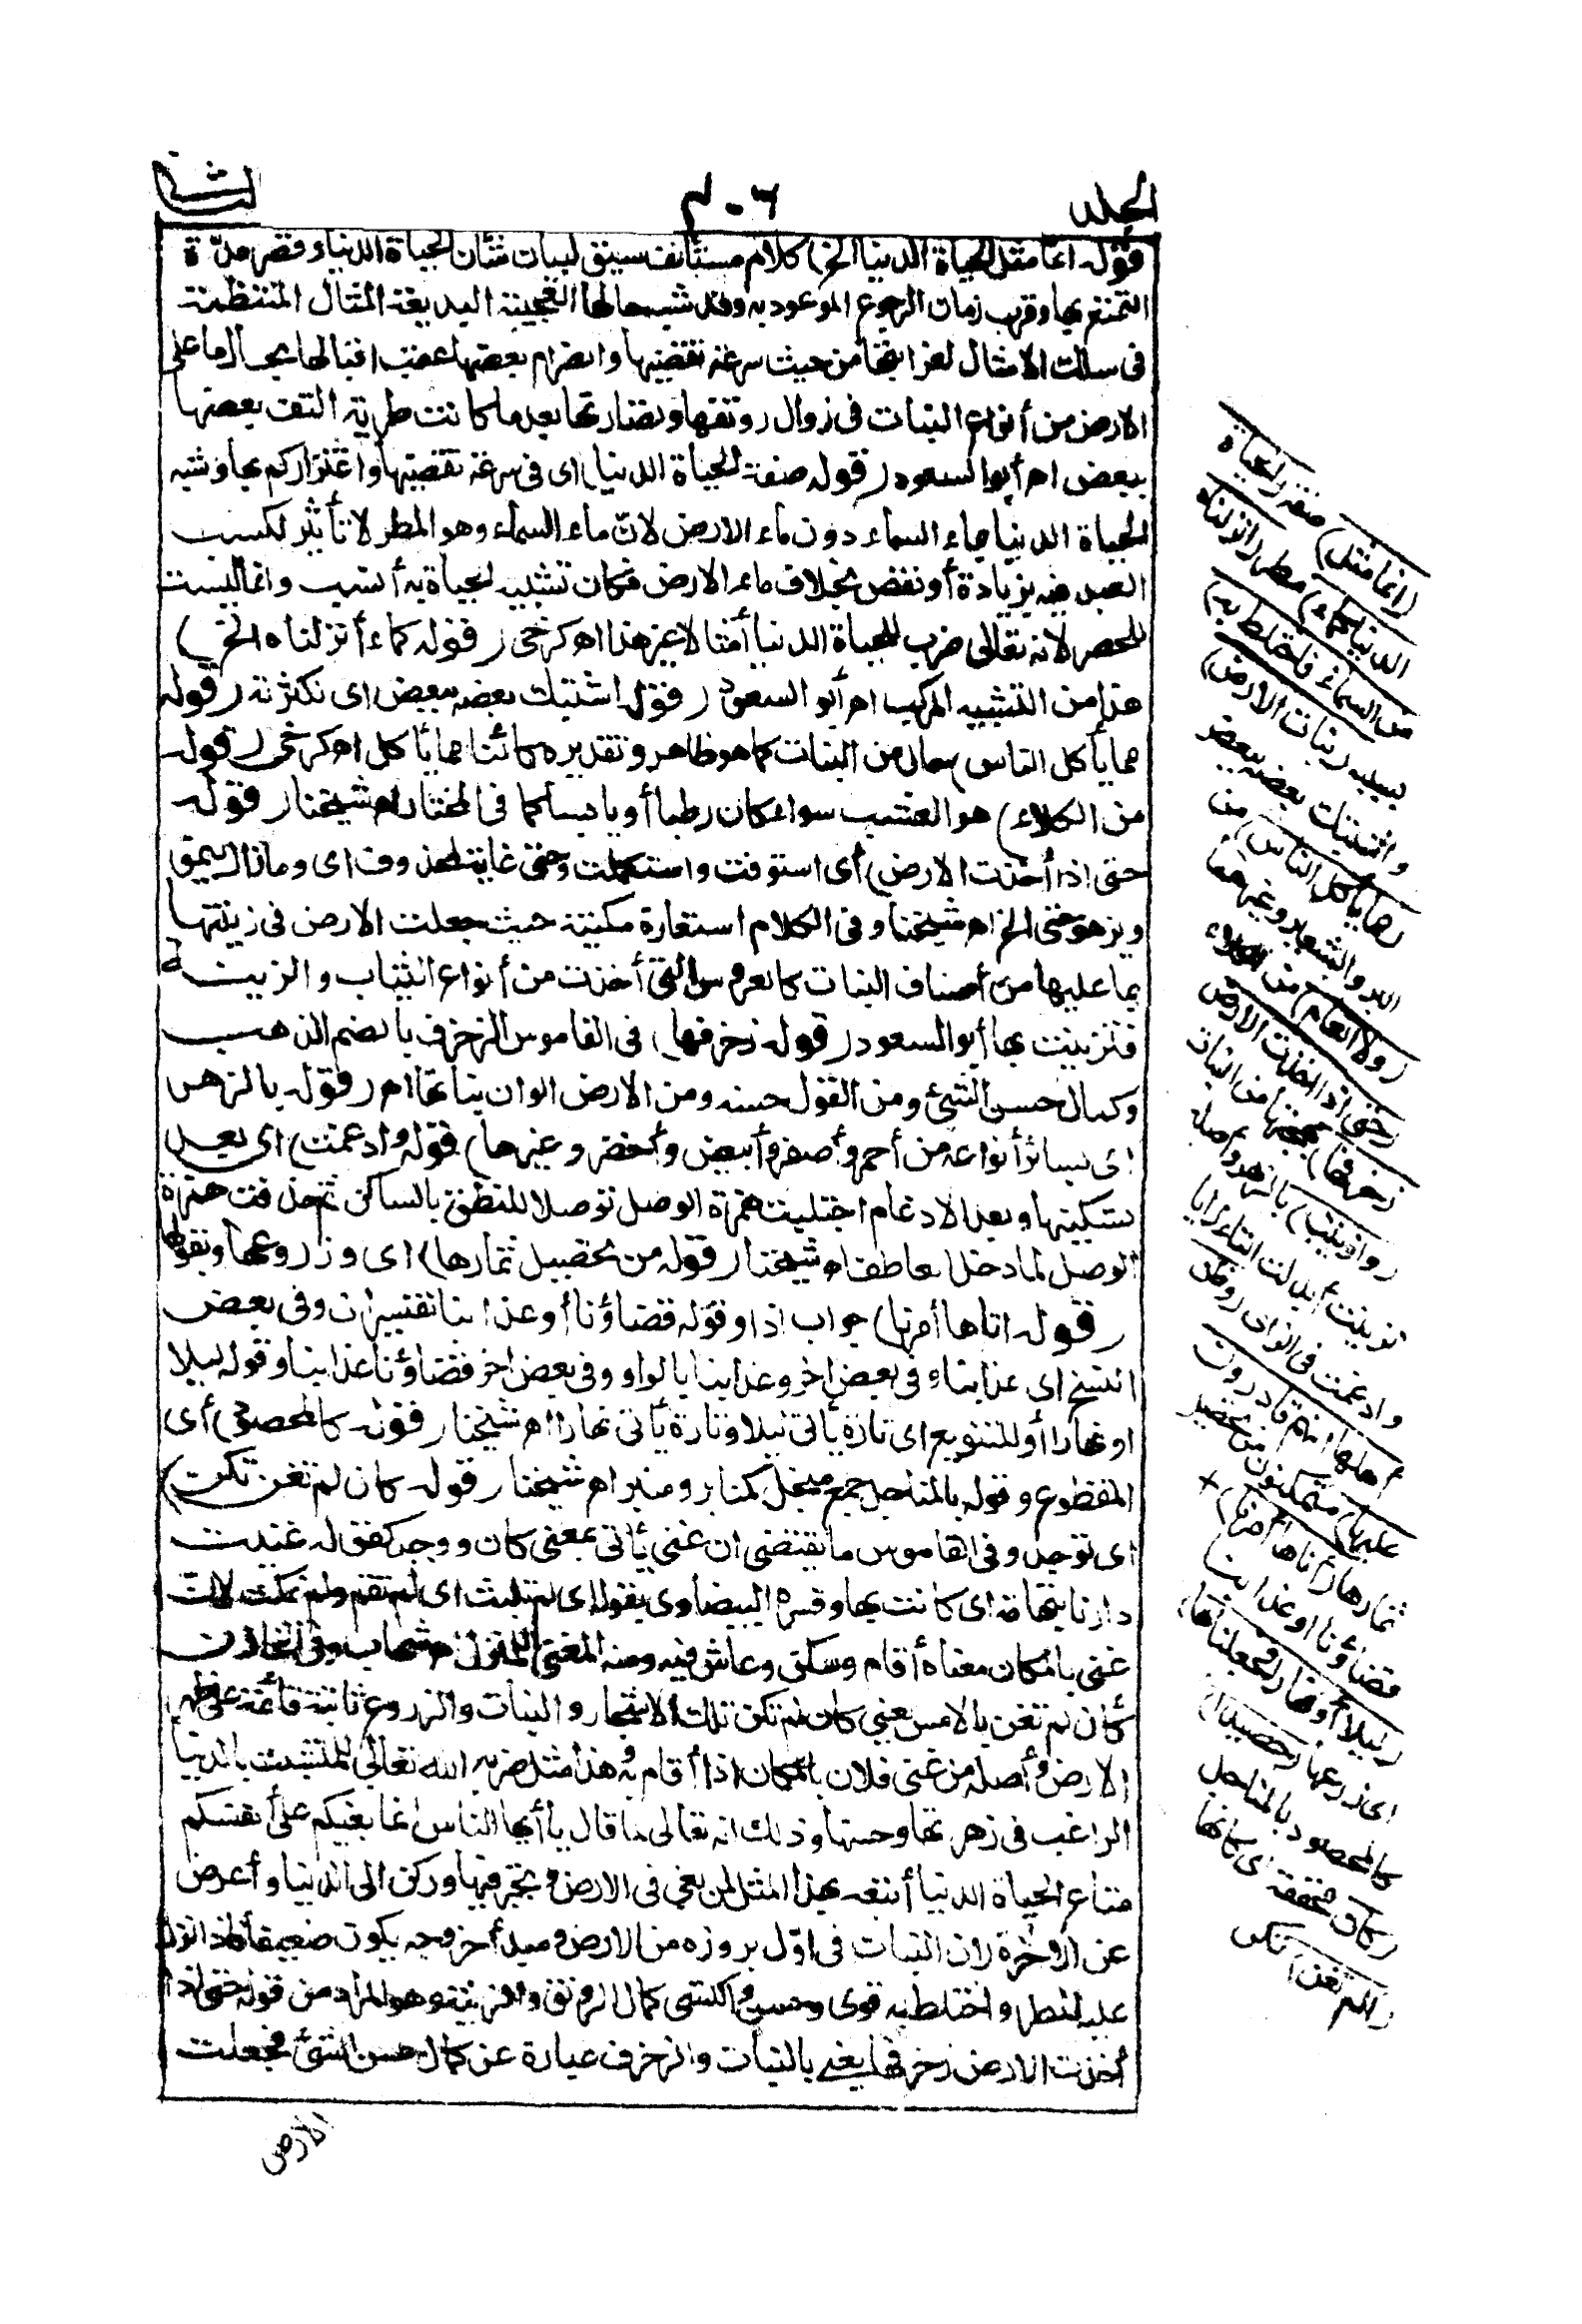 الجلد
٤٠٦
الثانى
قوله انما مثل الحياة الدنيا الخ) كلام مستأنف سيق لبيان شأن الحياة الدنيا وقصر مدّة
التمتع بها وقرب زمان الرجوع الموعود به وقد شبه حالها العجيبة البديعة المثال المنتظمة
فى سلك الامثال لغرابتها من حيث سرعة تقضيها وانصرام بعضها عقب اقبالها بحال ما على
الارض من أنواع النبات فى زوال رونقها ونضارتها بعد ما كانت طرية التف بعضها
ببعض اه أبو السعود (قوله صفة الحياة الدنيا) اى فى سرعة تقضيها واغتراركم بها وشبه
الحياة الدنيا بماء السماء دون ماء الارض لانّ ماء السماء وهو المطر لا تأثير لكسب
العبد فيه بزيادة أو نقص بخلاف ماء الارض فكان تشبيه الحياة به أنسب وانما ليست
للحصر لانه تعالى ضرب للحياة الدنيا أمثالا غير هذا اه كرخى (قوله كماء أنزلناه الخ)
هذا من التشبيه المركب اه أبو السعود (قوله اشتبك بعضه ببعض اى لكثرته (قوله
مما يأكل الناس) حال من النبات كما هو ظاهر وتقديره كائنا مما يأكل اه كرخى (قوله
من الكلاء) هو العشب سواء كان رطبا أو يابسا كما فى المختار اه شيخنا (قوله
حتى اذا أخذت الارض) أى استوفت واستكملت وحتى غاية لمحذوف اى وما زال ينمو
ويزهو حتى الخ اه شيخنا وفى الكلام استعارة مكنية حيث جعلت الارض فى زينتها
بما عليها من أصناف النبات كالعروس التى أخذت من أنواع الثياب والزينة
فتزينت بها أبو السعود (قوله زخرفها) فى القاموس الزخرف بالضم الذهب
وكمال حسن الشئ ومن القول حسنه ومن الارض الوان نباتها اه (قوله بالزهر
اى بسائر أنواعه من أحمر وأصفر وأبيض وأخضر وغيرها) قوله وادغمت) اى بعد
تسكينها وبعد الادغام اجتلبت همزة الوصل توصلا للنطق بالساكن ثم حذفت همزة
الوصل لما دخل العاطف اه شيخنا (قوله من تحصيل ثمارها) اى وزروعها وبقولها
(قوله اتاها أمرنا) جواب اذا وقوله قضاؤنا أو عذابنا تفسيران وفى بعض
النسخ اى عذابنا وفى بعض اخر وعذابنا بالواو وفى بعض اخر قضاؤنا عذابنا وقوله ليلا
او نهارا أو للتنويع اى تارة يأتى ليلا وتارة يأتى نهارا اه شيخنا (قوله كالمحصود) أى
المقطوع وقوله بالمناجل جمع منجل كمنابر ومنبر اه شيخنا (قوله كان لم تغن تكن)
اى توجد وفى القاموس ما يقتضى ان غنى يأتى بمعنى كان ووجد كقوله غنيت
دارنا بتهامة اى كانت بها وفسره البيضاوى بقوله اى لم تلبث اى لم تقم ولم تمكث لانّ
غنى بالمكان معناه أقام وسكن وعاش فيه ومنه المغنى للمنزل اه شهاب وفى الخازن
كأن لم تغن بالامس يعنى كان لم تكن تلك الاشجار والنبات والزروع ثابتة قائمة على ظهر
الارض وأصله من غنى فلان بالمكان اذا أقام به هذا مثل ضربه الله تعالى للمتشبث بالدنيا
الراغب فى زهرتها وحسنها وذلك انه تعالى لما قال يا أيها الناس انما بغيكم على أنفسكم
متاع الحياة الدنيا أتبعه بهذا المثل لمن بغى فى الارض وتجبر فيها وركن الى الدنيا وأعرض
عن الآخرة لان النبات فى اوّل بروزه من الارض ومبدأ خروجه يكون ضعيفا فاذا نزل
عليه المطر واختلط به قوى وحسن واكتسى كمال الرونق والزينة وهو المراد من قوله حتى اذا
أخذت الارض زخرفها يعنى بالنبات والزخرف عبارة عن كمال حسن الشئ فجعلت
الارض
(انما مثل) صفة (الحياة
الدنيا كماء) مطر (انزلناه
من السماء فاختلط به)
بسببه (نبات الارض)
واشتبك بعضه ببعض
(مما يأكل الناس) من
البر والشعير وغيرهما
(والانعام) من الكلاء
(حتى اذا اخذت الارض
زخرفها) بهجتها من النبات
(وازينت) بالزهر واصله
تزينت أبدلت التاء زايا
وادغمت فى الزاى (وظن
اهلها انهم قادرون
عليها) متمكنون من تحصيل
ثمارها (أتاها أمرنا)
قضاؤنا او عذابنا
(ليلا أو نهارا فجعلناها)
اى زرعها (حصيدا)
كالمحصود بالمناجل
(كان) مخففة اى كانها
(لم تغن) تكن